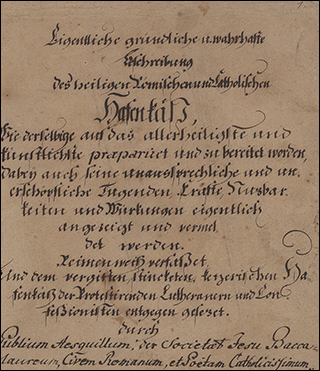 Eigentliche gründliche u. wahrhafte
Beschreibung
des heiligen Römischen und Catholischen
Hasenkäß,
Wie derselbige auf das allerheiligste und
künstlichste præpariret und zubereitet worden,
Dabey auch seine unaussprechliche und un-
erschöpfliche Tugenden, Kräfte, Nutzbar-
keiten und Würkungen eigentlich
angezeigt und vermel-
det werden.
Reimenweiß verfasset,
Und dem vergifften, stincketen, kezerischen Ha-
senkäß der Protestirenden Lutheranern und Con-
fessionisten entgegen gesetzt.
durch
Publium Aesquillum, der Societät Jesu Bacca-
laureum, Civem Romanum, et Poëtam Catholicissimum